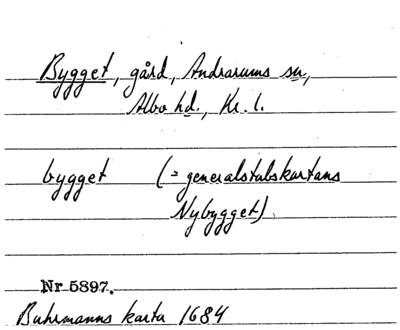 Bygget, gård, Andrarums sn,
Albo hd., Kr. l.
bygget (= generalstabskartans
Nybygget).
Nr 5897.
Buhrmanns karta 1684